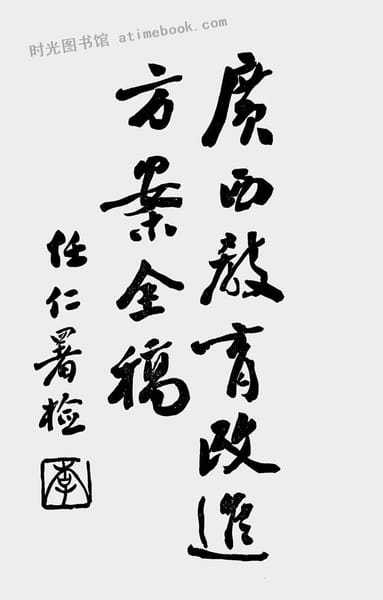 时光图书馆 atimebook.com
廣西教育改進
方案全稿
任仁署检
李